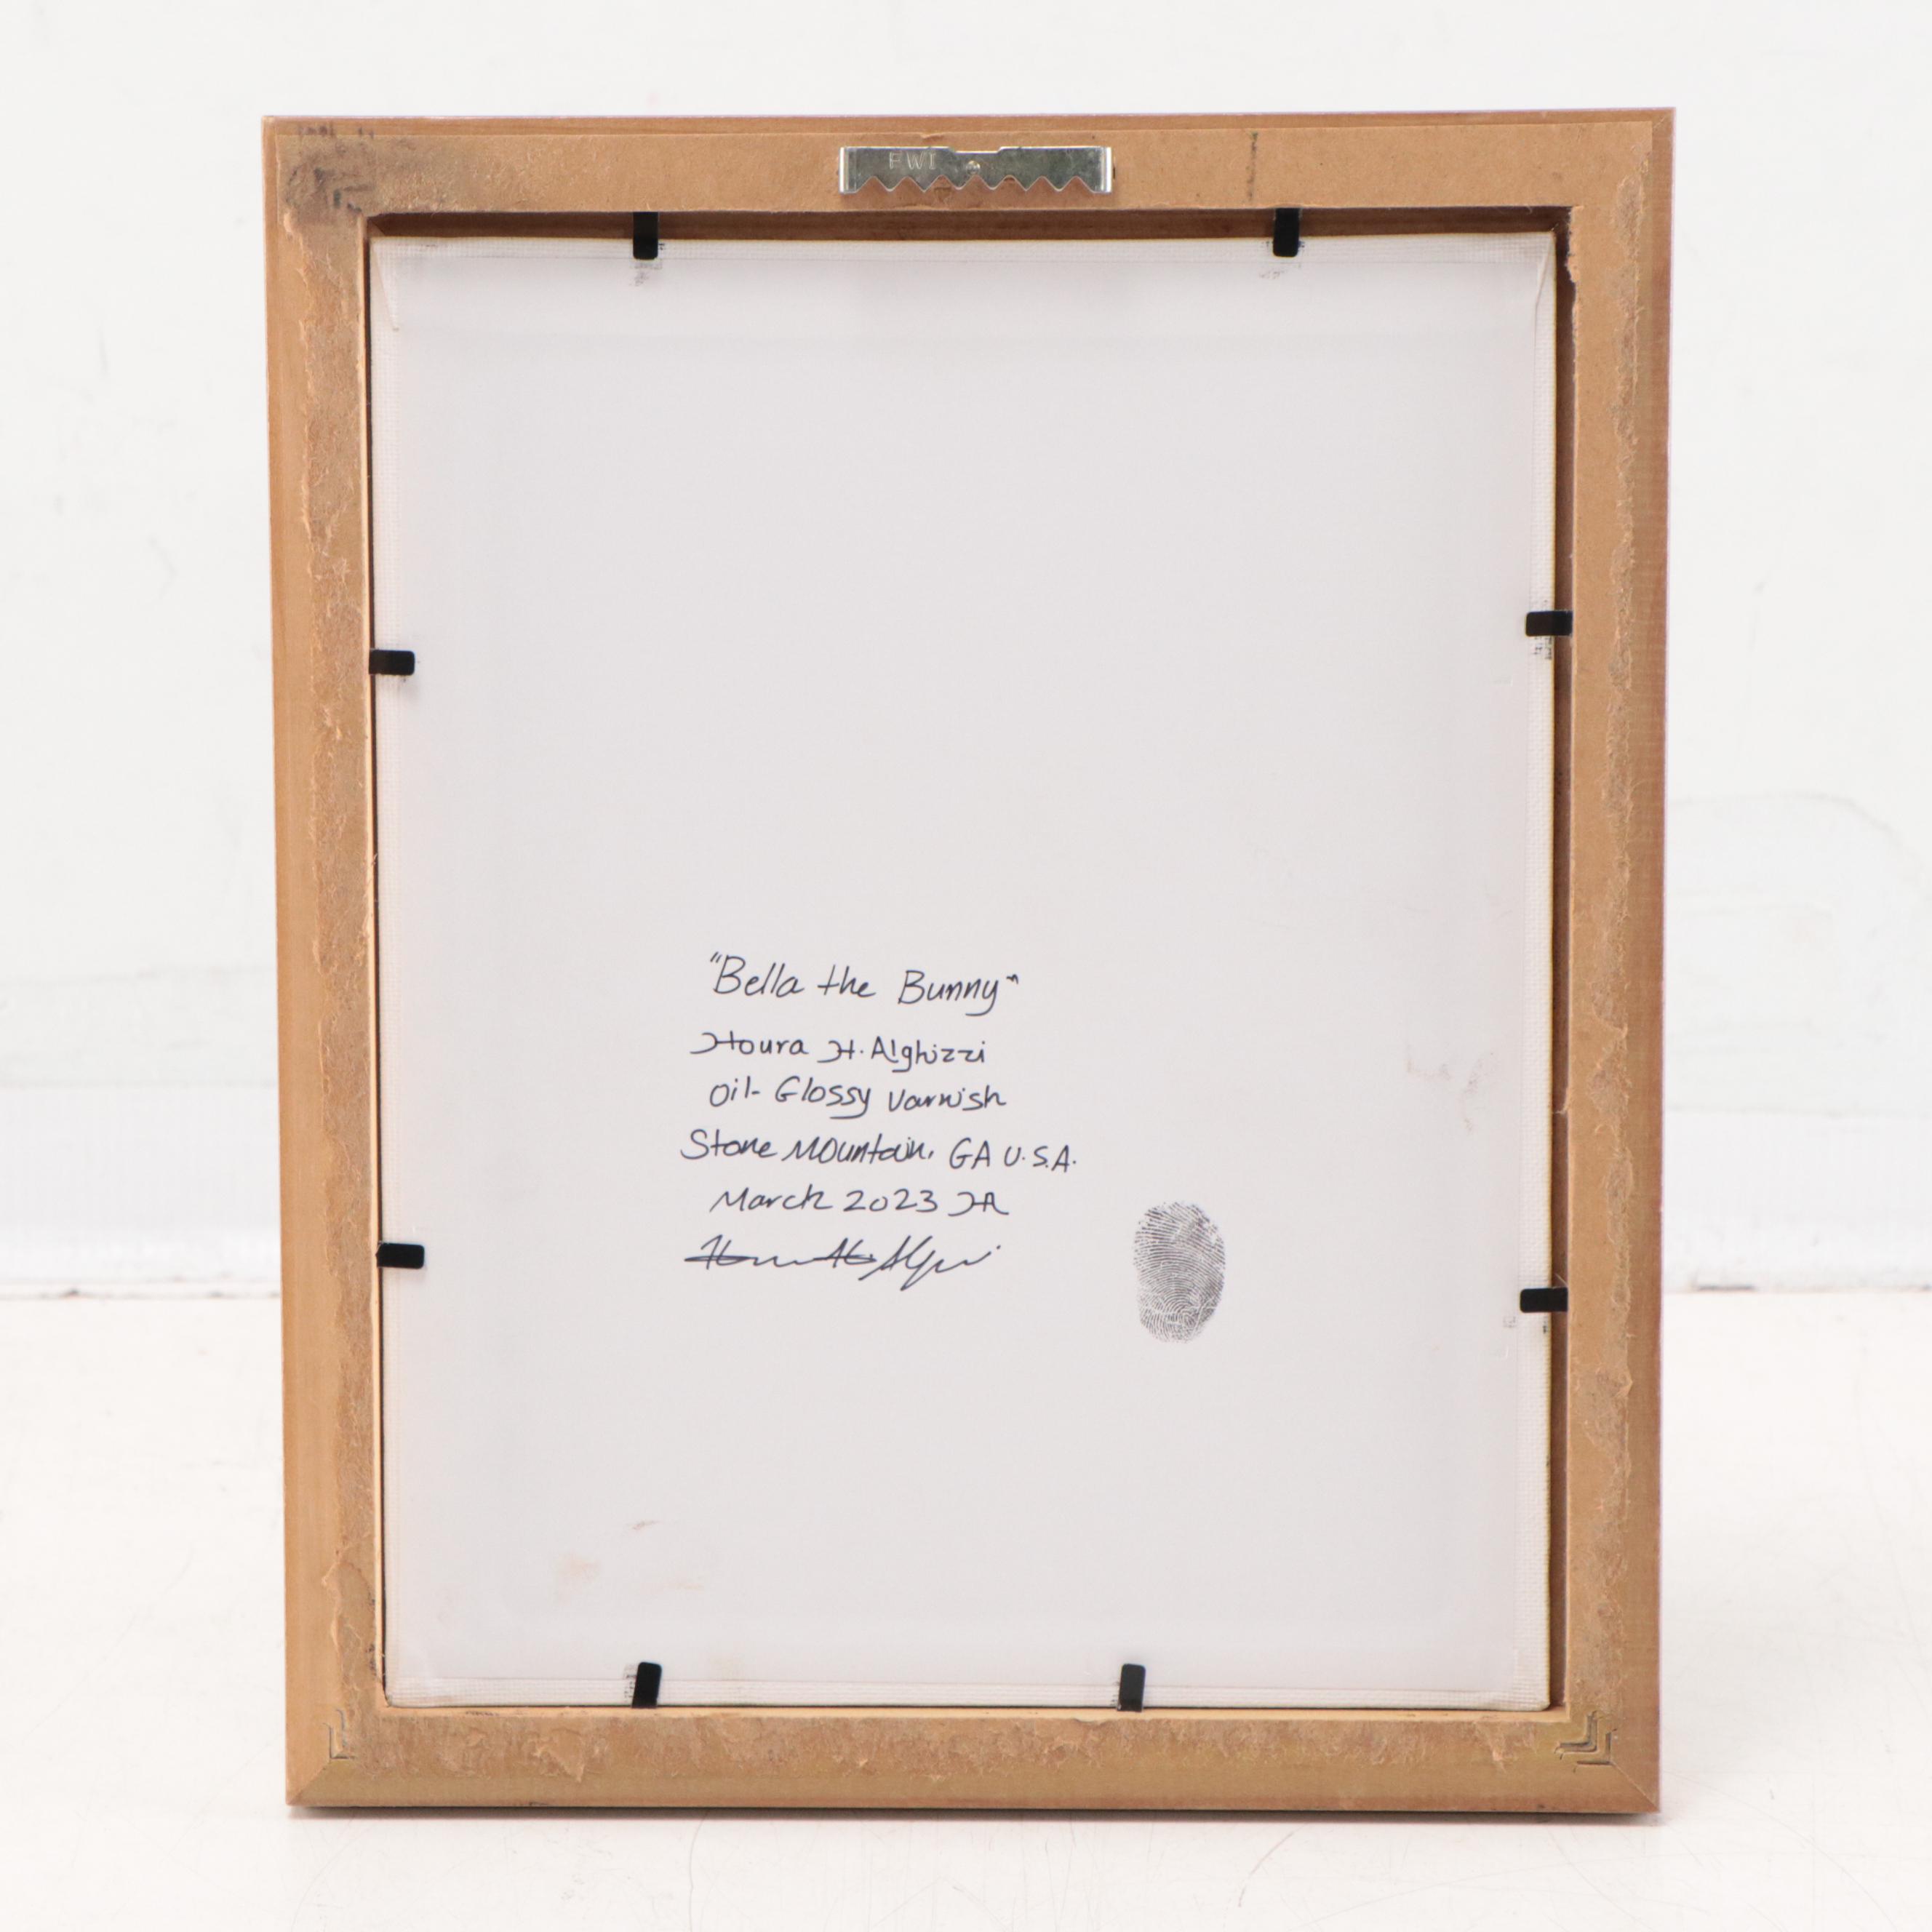 FWI
"Bella the Bunny"
Houra H. Alghizzi
Oil- Glossy Varnish
Stone Mountain, GA U.S.A.
March 2023 HA